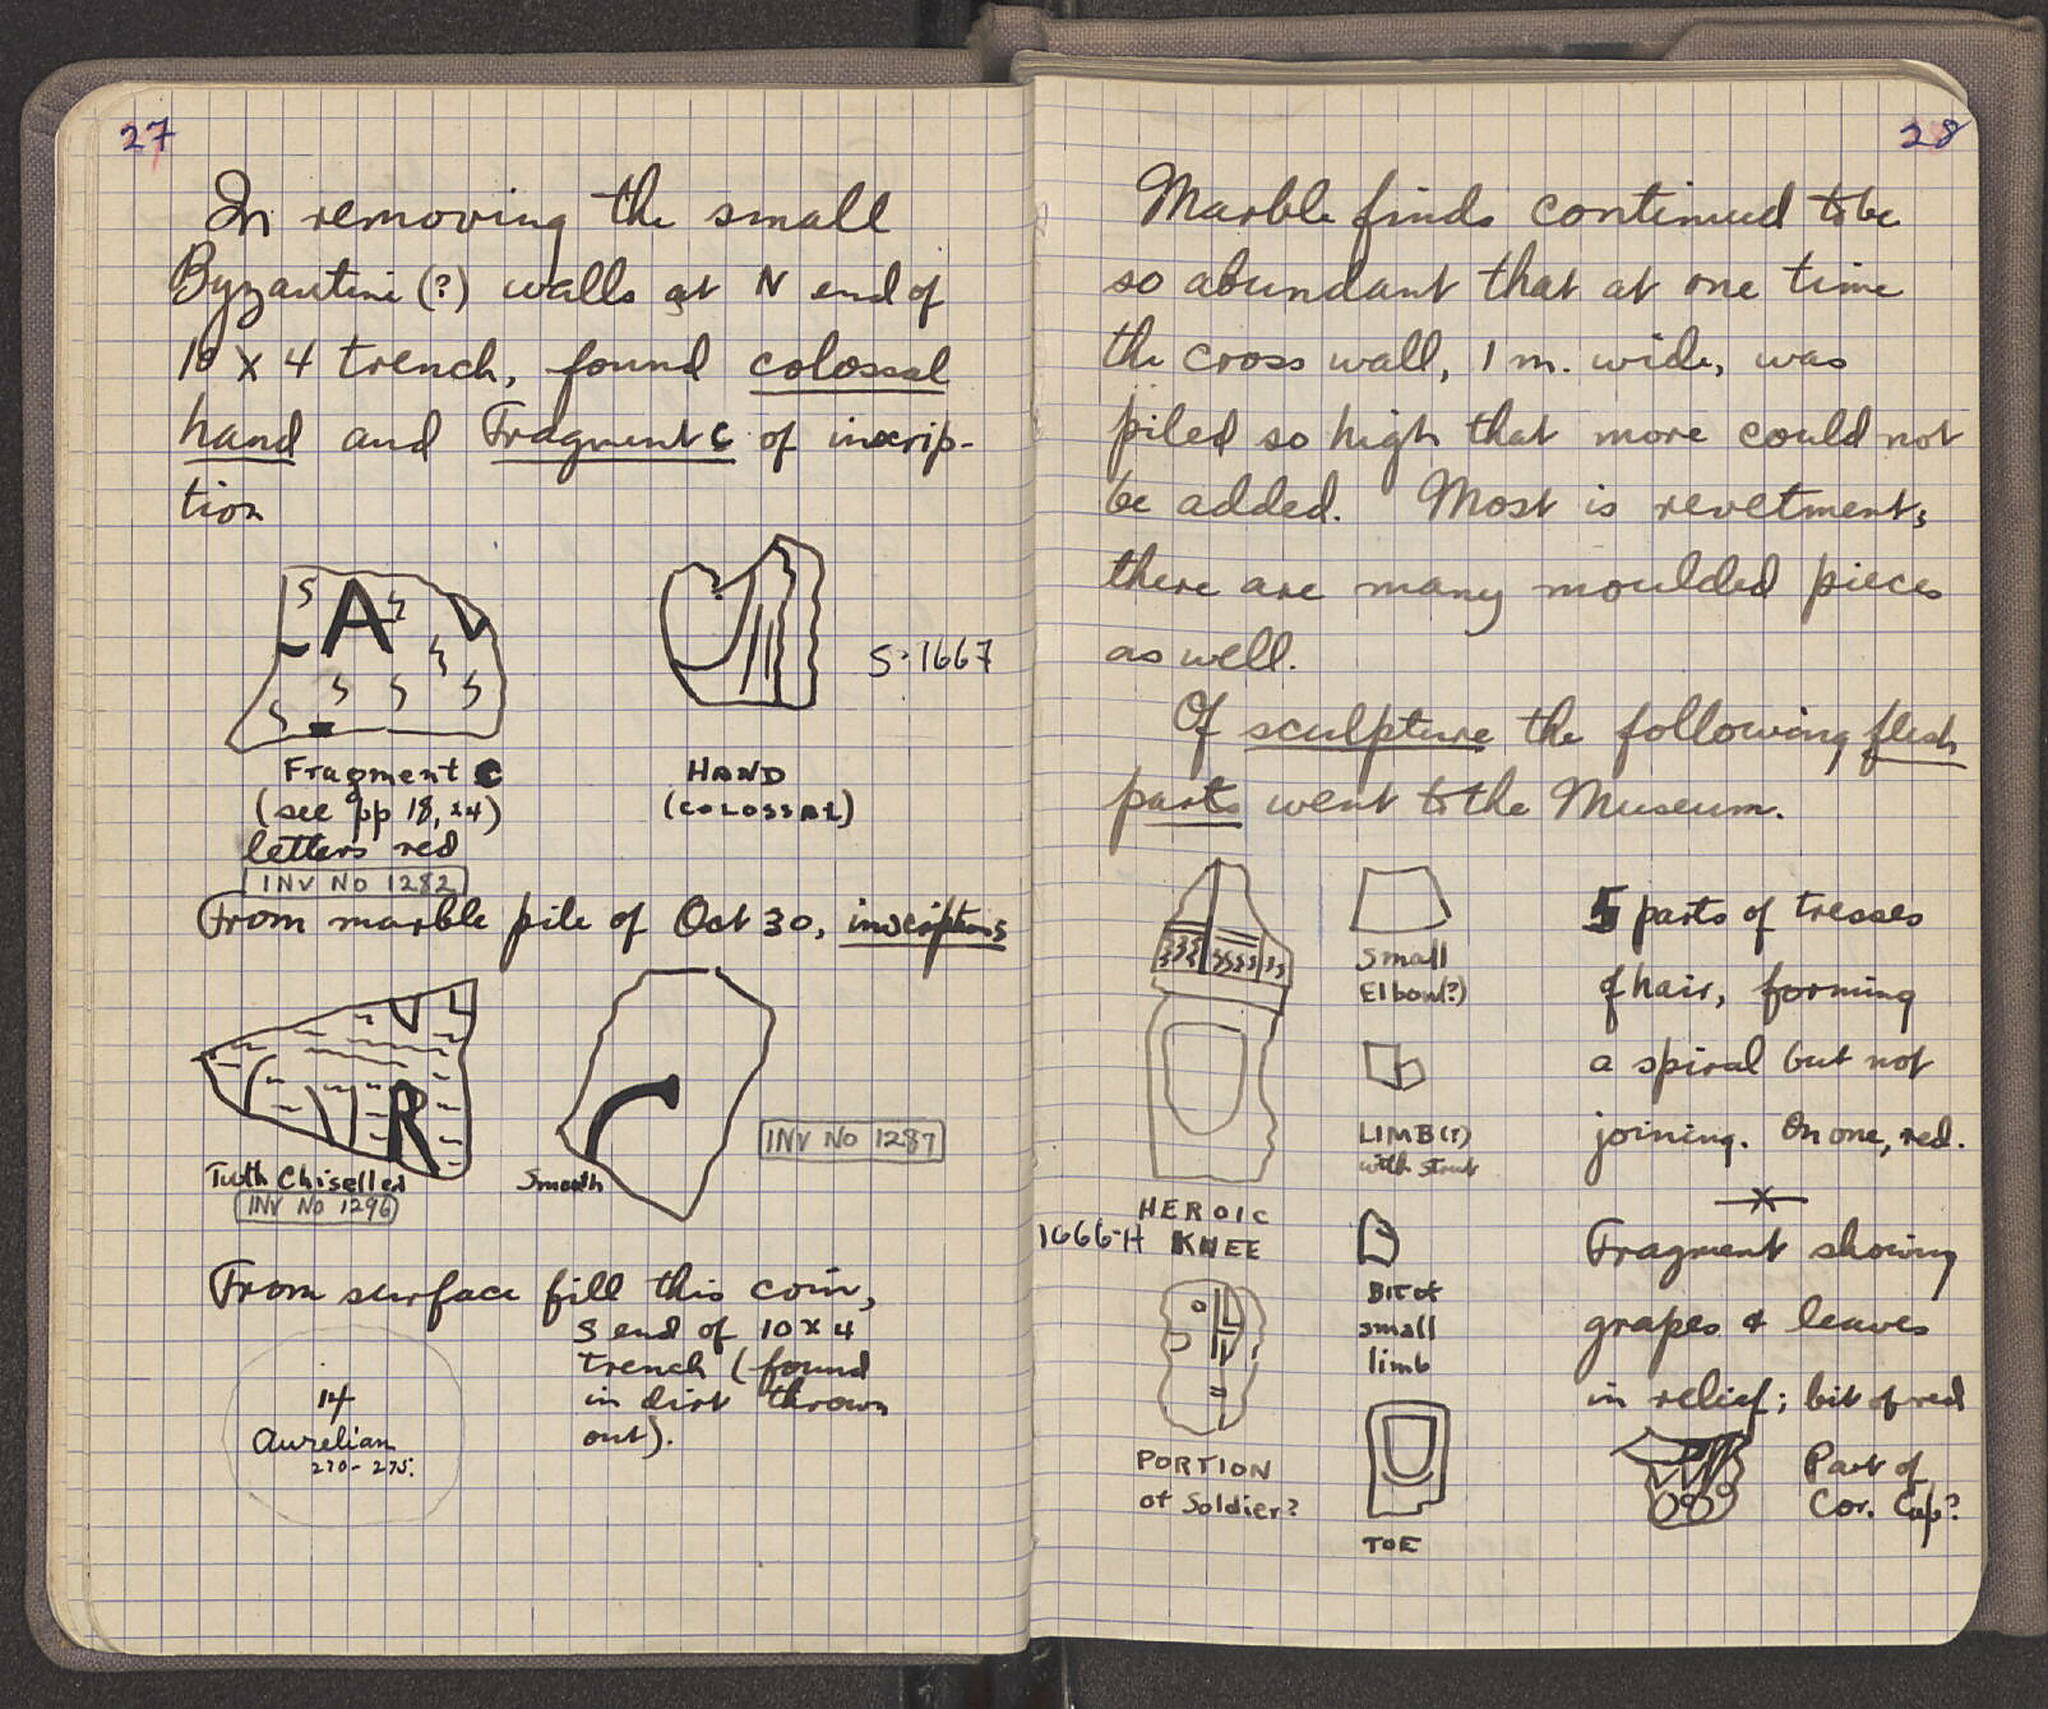 27
In removing the small
Byzantine (?) walls at N end of
10 x 4 trench, found colossal
hand and Fragment C of inscrip-
tion
A
S-1667
Fragment C
(see pp 18, 24)
letters red
INV NO 1282
HAND
(COLOSSAL)
From marble pile of Oct 30, inscriptions
R
Tooth Chiselled
INV NO 1296
Smooth
INV NO 1287
From surface fill this coin,
S end of 10 x 4
trench (found
in dirt thrown
out).
14
Aurelian
270-275.
28
Marble finds continued to be
so abundant that at one time
the cross wall, 1 m. wide, was
piled so high that more could not
be added. Most is revetment;
there are many moulded pieces
as well.
Of sculpture the following flesh
parts went to the Museum.
HEROIC
1666-H KNEE
PORTION
of Soldier?
Small
Elbow(?)
LIMB(?)
with strut
Bit of
small
limb
TOE
5 parts of tresses
of hair, forming
a spiral but not
joining. On one, red.
Fragment showing
grapes & leaves
in relief; bit of red
Part of
Cor. Cap?